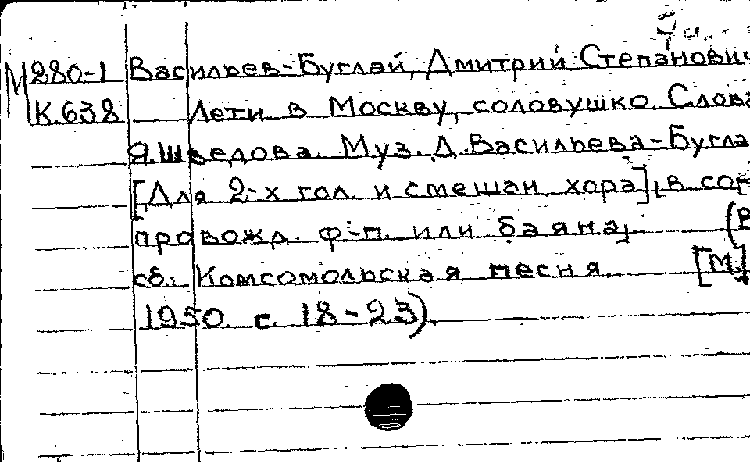 М280-1 Васильев-Буглай, Дмитрий Степанович
К.638 Лети в Москву, соловушко. Слова
Я.Шведова. Муз. Д.Васильева-Бугла
[Для 2-х гол. и смешан. хора], в соп
провожд. ф-п. или баяна. (В
сб. Комсомольская песня. [М.],
1950. с. 18-23).